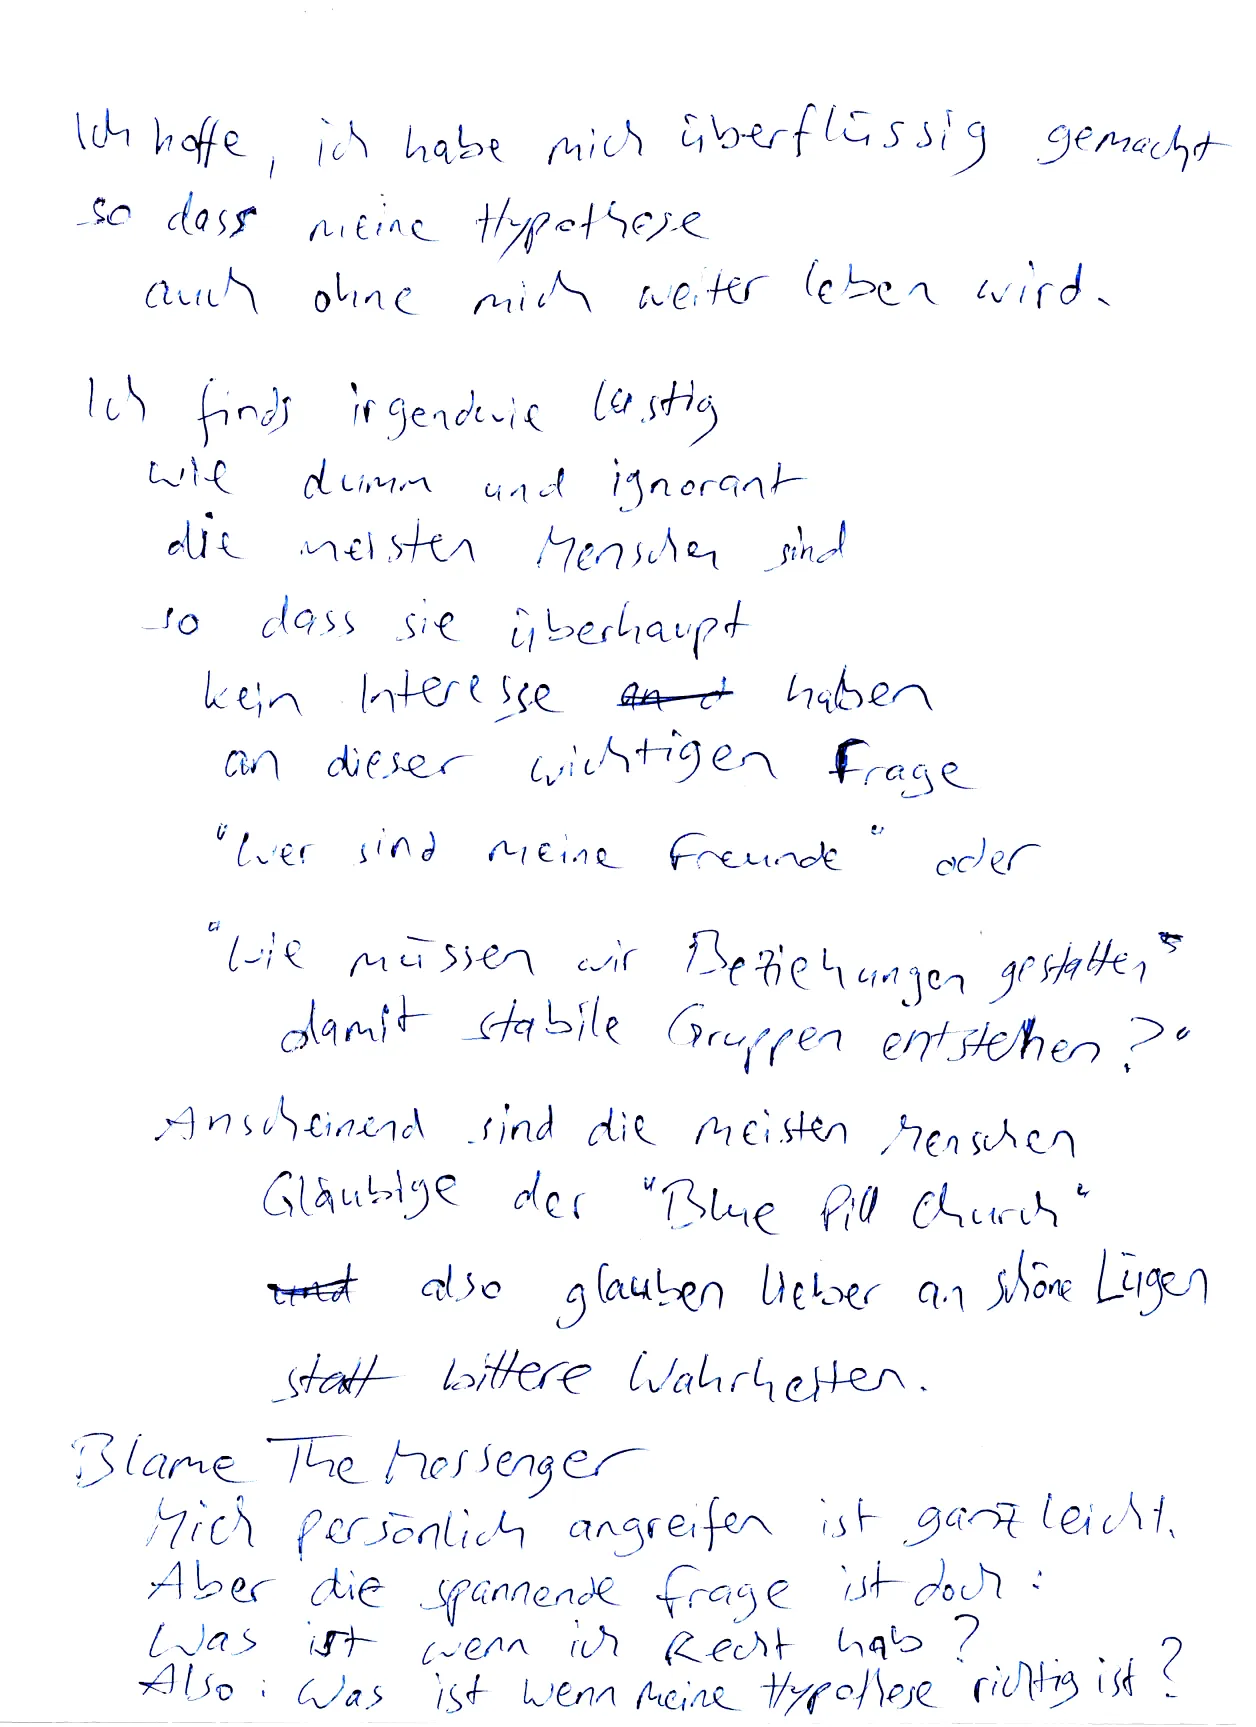 Ich hoffe, ich habe mich überflüssig gemacht
so dass meine Hypothese
auch ohne mich weiter leben wird.
Ich finds irgendwie lustig
wie dumm und ignorant
die meisten Menschen sind
so dass sie überhaupt
kein Interesse haben
an dieser wichtigen Frage
"Wer sind meine Freunde" oder
"Wie müssen wir Beziehungen gestalten"
damit stabile Gruppen entstehen?"
Anscheinend sind die meisten Menschen
Gläubige der "Blue Pill Church"
also glauben lieber an schöne Lügen
statt bittere Wahrheiten.
Blame The Messenger
Mich persönlich angreifen ist ganz leicht.
Aber die spannende Frage ist doch:
Was ist wenn ich Recht hab?
Also: Was ist wenn meine Hypothese richtig ist?